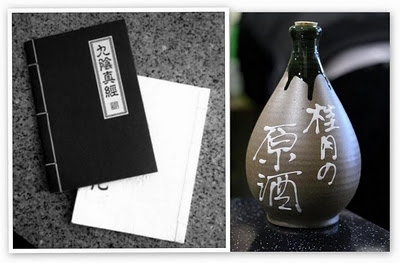 九陰真經
桂月の
原酒